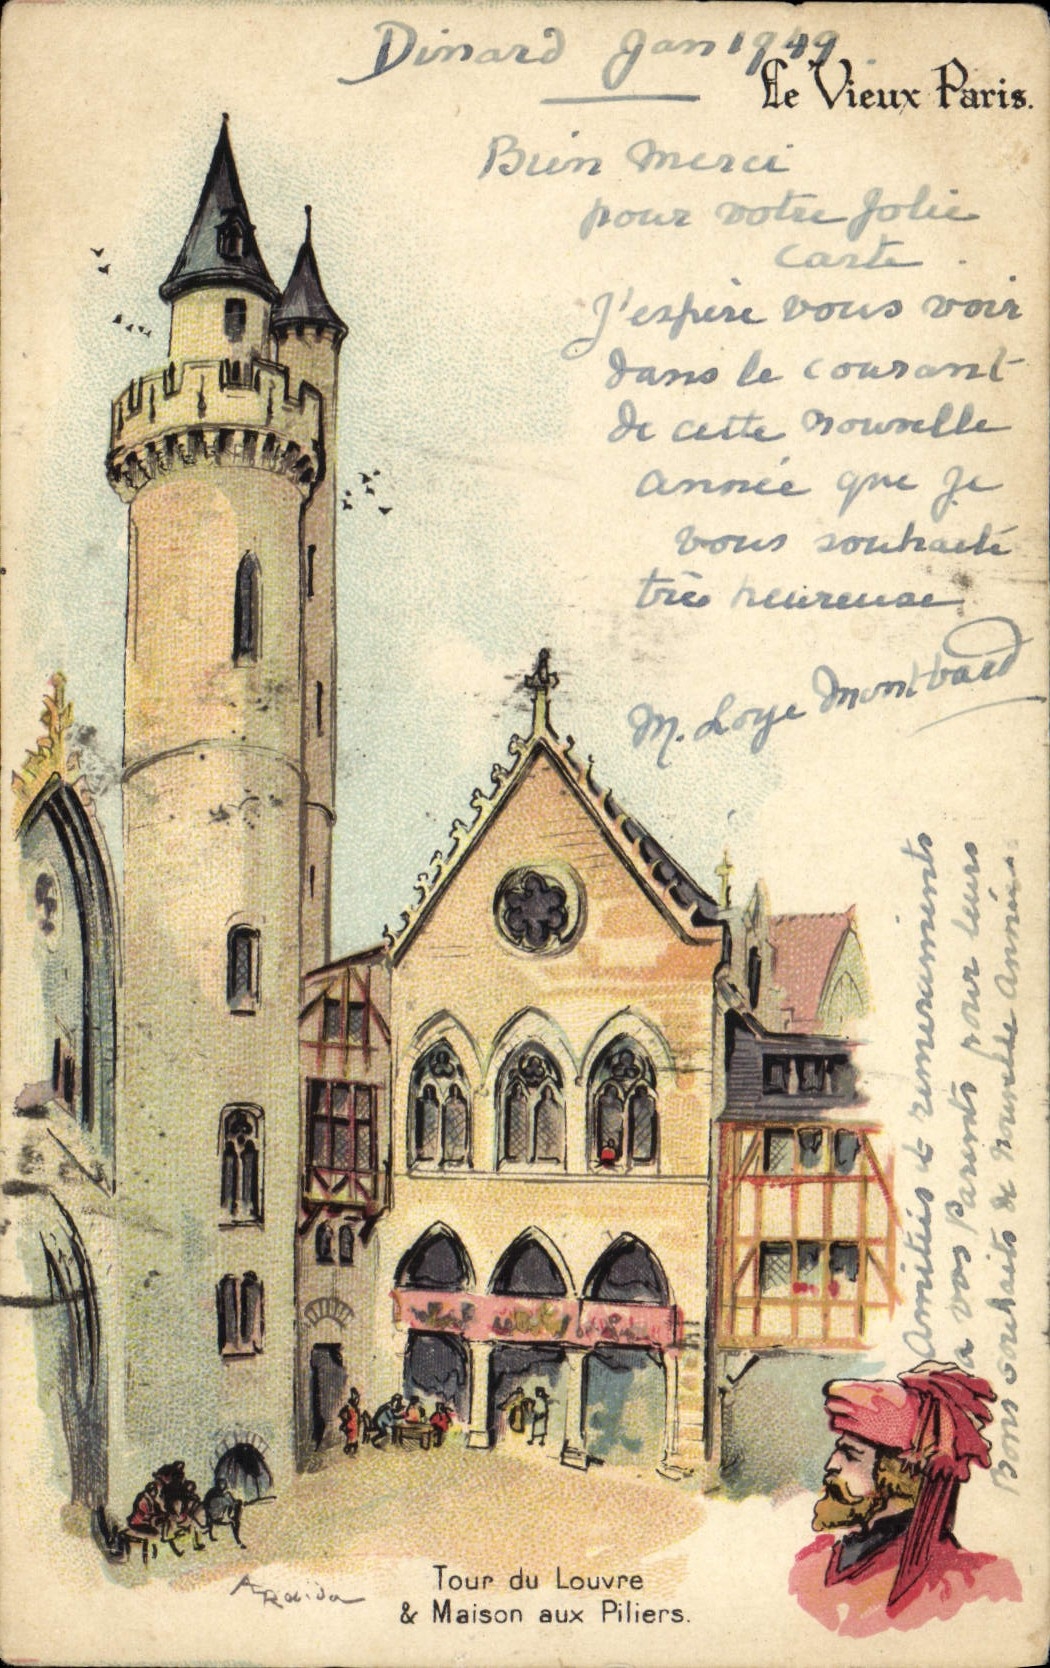 Dinard Jan 1949
Le Vieux Paris.
Bien merci
pour votre jolie
carte.
J'espère vous voir
dans le courant
de cette nouvelle
année que je
vous souhaite
très heureuse
M. Loye Montbard
Amitiés & remerciements
à vos parents pour leurs
Bons souhaits de nouvelle Année.
A Robida
Tour du Louvre
& Maison aux Piliers.